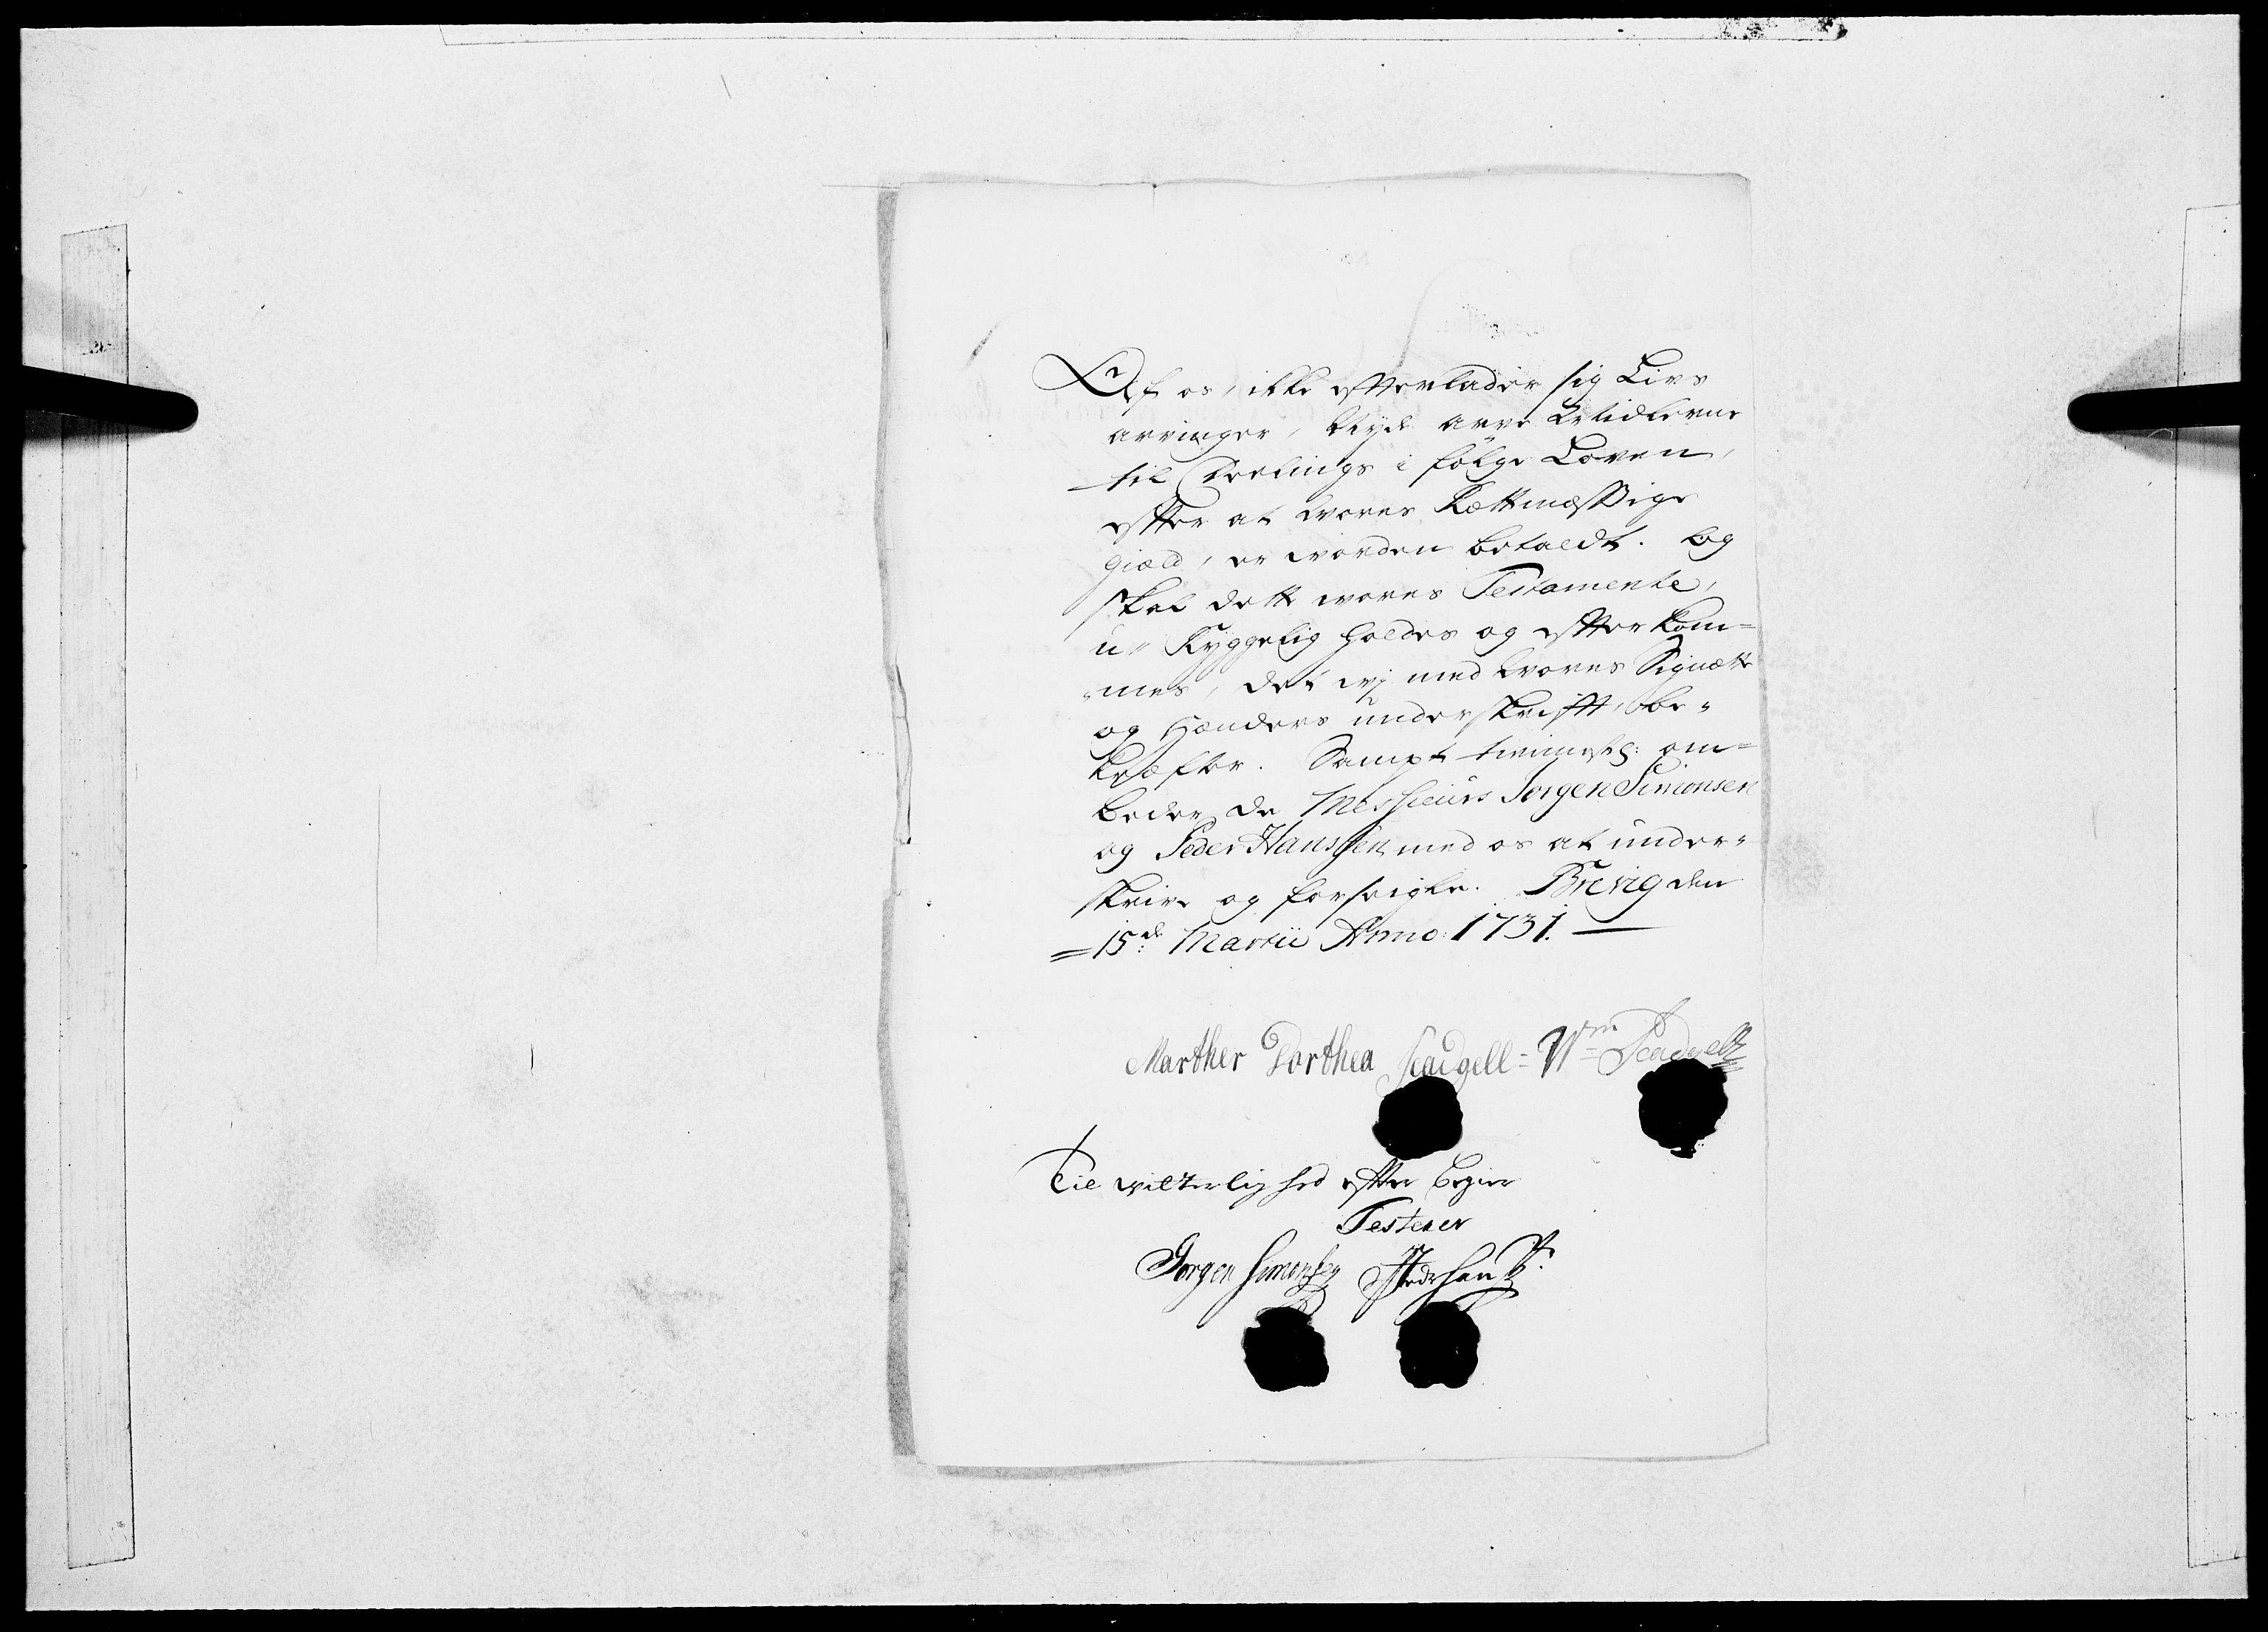 Af os, ikke efterlader sig Livs
arvinger, bliver arve Midlerne
til Deelings i følge Loven,
efter at vores Rettmæssige
Giæld, er vorden betaldt. Og
skal dette vores Testamente,
u-Ryggelig holdes og efterkom=
mes, det vj med vores Signette
og Hænders underskrifft, be-
kræfter. Sampt tienestl: om=
beder de Messieurs Jørgen Simonsen
og Peder Hanssen med os at under-
skrive og forseigle. Brevig den
=15de Martii Anno: 1731.
Marther Dorthea Seadgell = Wm Seadgell
Til vitterlighed efter begier
Testerer
Jørgen Simonsen Peder Hans: